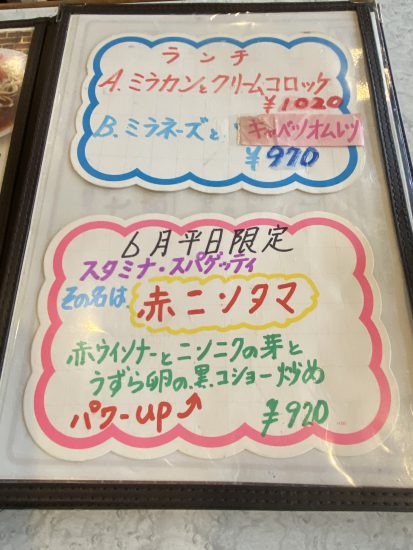 ランチ
A.ミラカンとクリームコロッケ
¥1020
B.ミラネーズと キャベツオムレツ
¥970
6月平日限定
スタミナ・スパゲッティ
その名は 赤ニンタマ
赤ウインナーとニンニクの芽と
うずら卵の黒コショー炒め
パワーup ¥920